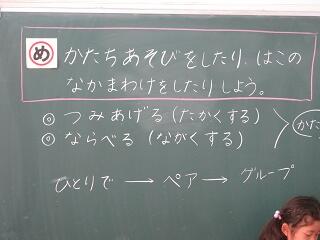 め かたちあそびをしたり、はこの
なかまわけをしたりしよう。
◎ つみあげる(たかくする)
◎ ならべる(ながくする)
かた
ひとりで → ペア → グループ